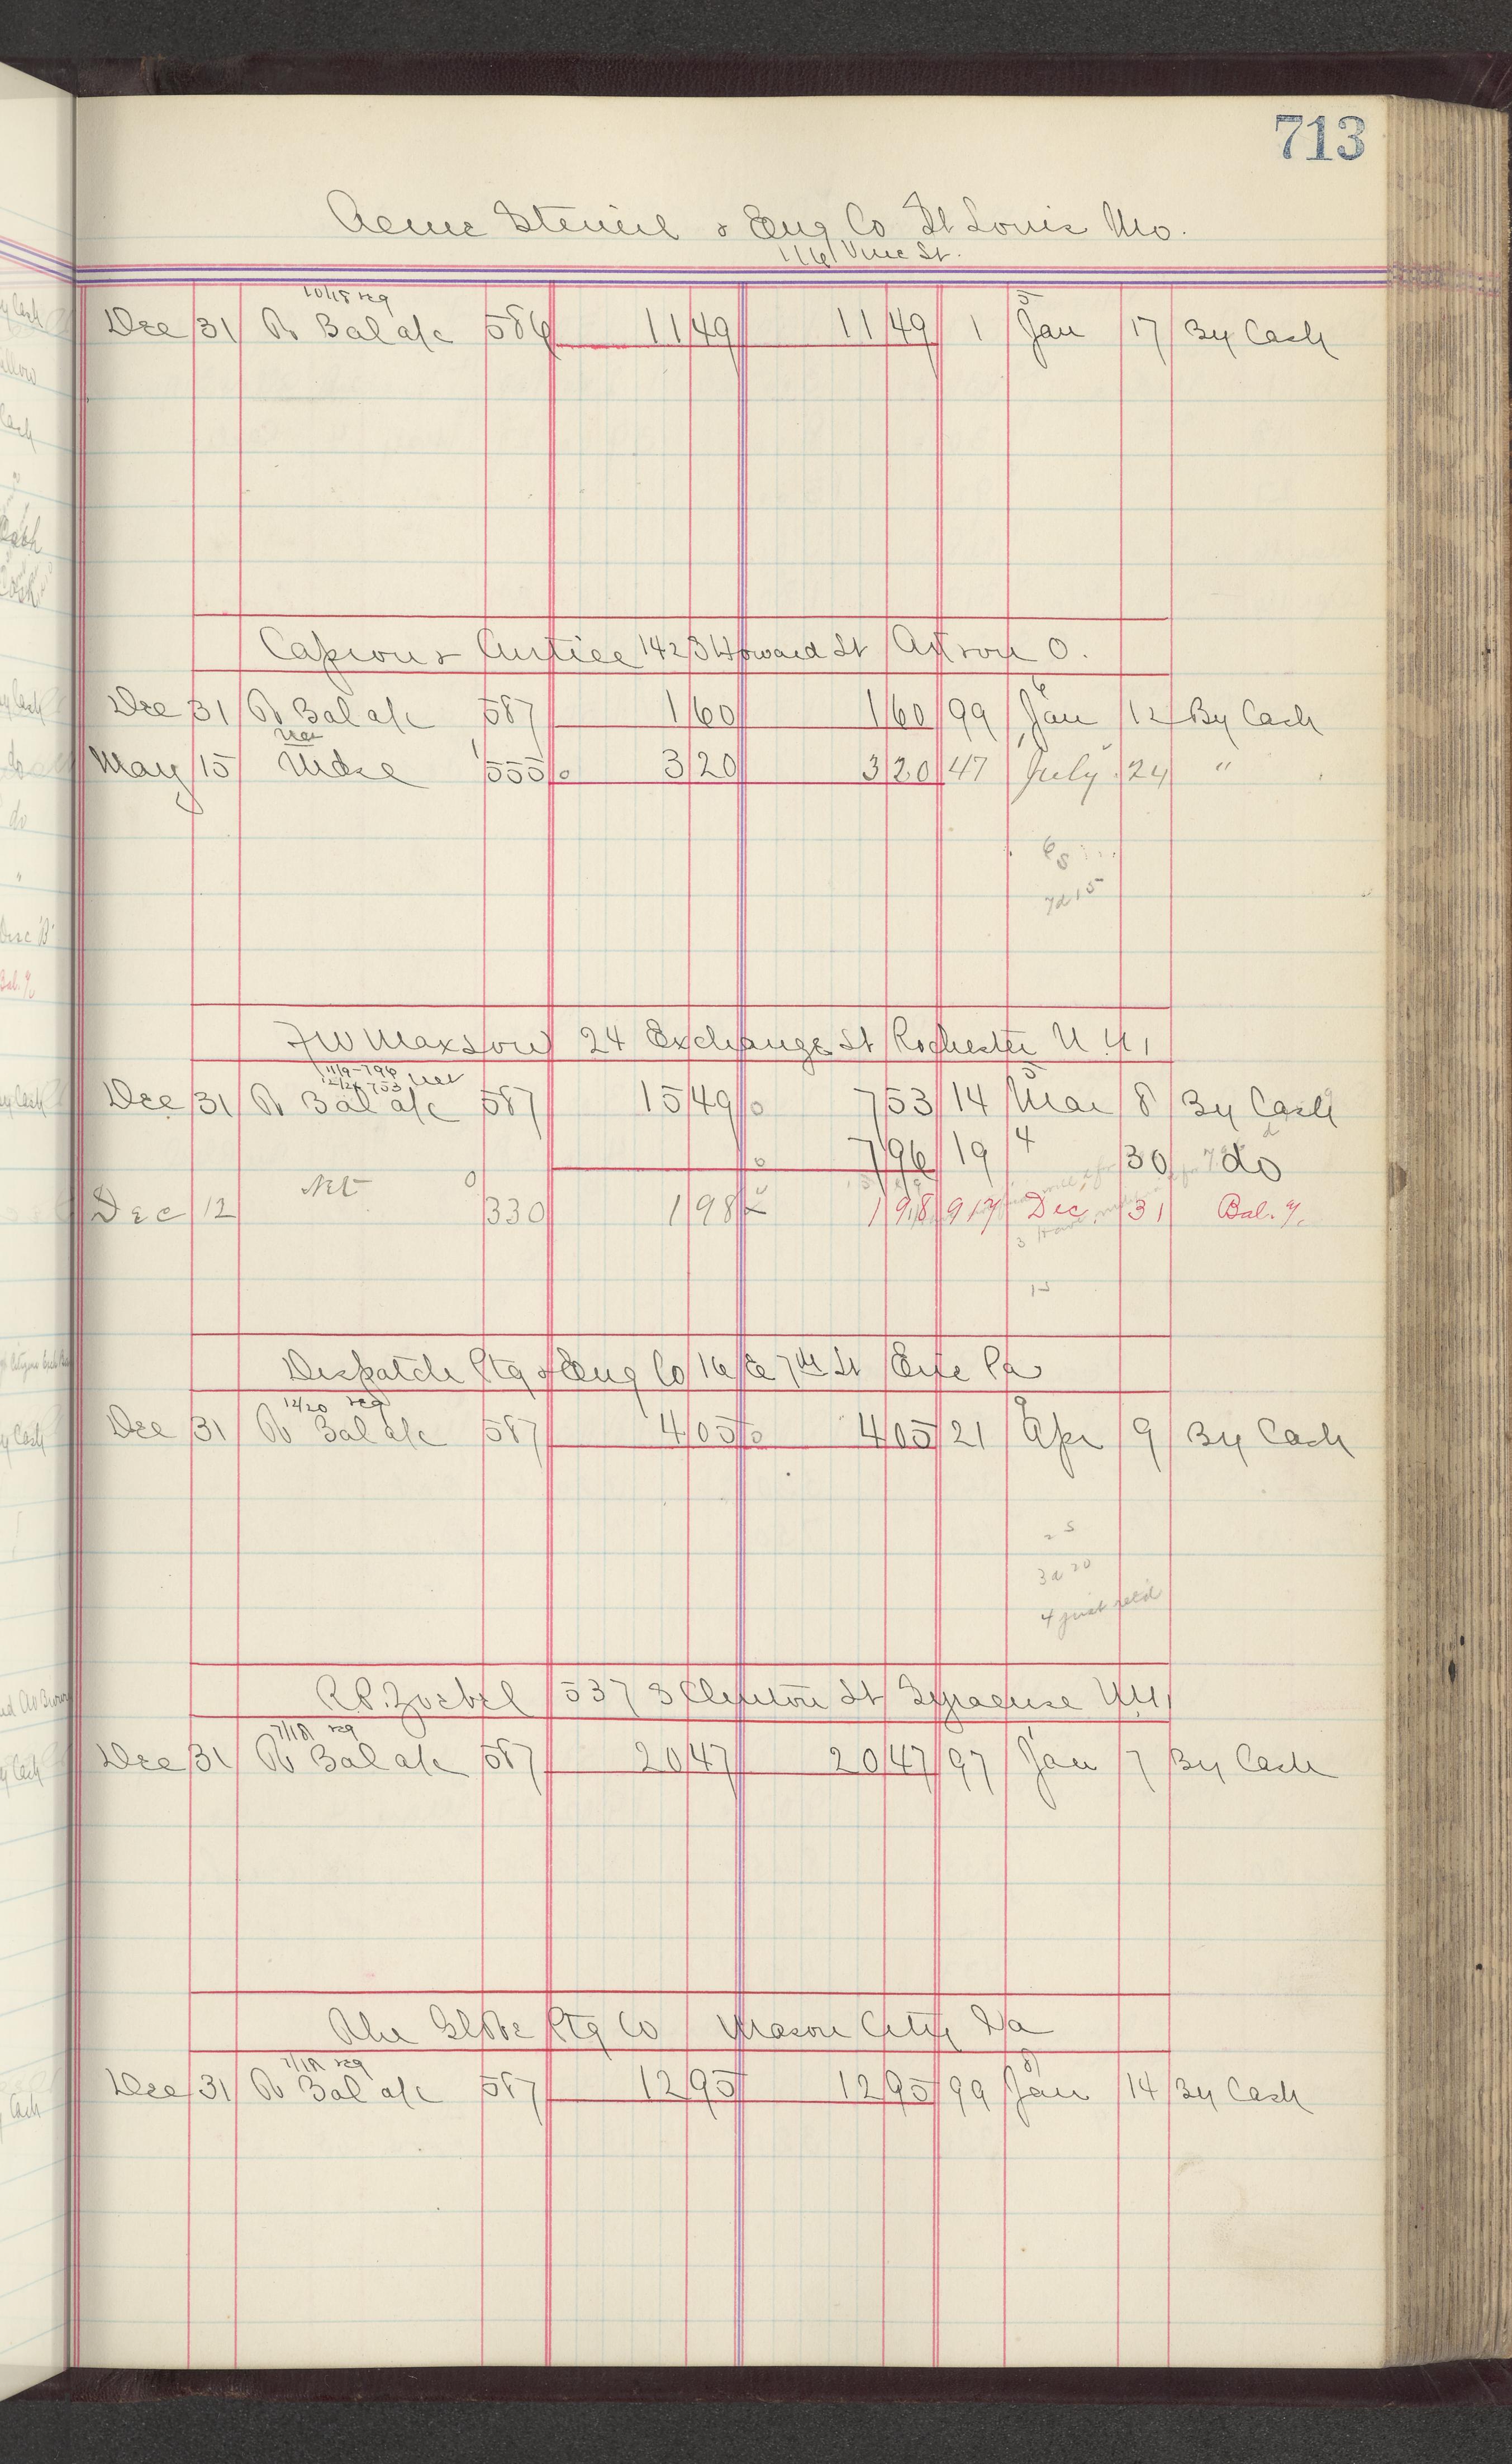 713
Acme Stencil & Eng Co St Louis Mo.
1161 Vine St.
10/15 reg 5
Dec 31 To Bal a/c 586 11 49 11 49 1 Jan 17 By Cash
Capron & Curtice 142 S Howard St Akron O.
6
Dec 31 To Bal a/c 587 1 60 1 60 99 Jan 12 By Cash
net
May 15 Mdse 555 3 20 3 20 47 July 24 "
7d 15
F W Maxson 24 Exchange St Rochester N.Y.
11/9-796
12/26 753 net 5
Dec 31 To Bal a/c 587 15 49 7 53 14 Mar 8 By Cash
7 96 19 4 30 do
Net
Dec 12 330 1 98 1 98 917 Dec 31 Bal. %
15
Dispatch Ptg & Eng Co 16 E 7th St Erie Pa
12/20 reg 9
Dec 31 To Bal a/c 587 4 05 4 05 21 Apr 9 By Cash
3d 20
4 just ret'd
R.P. Zoebel 537 S Clinton St Syracuse N.Y.
7/18 reg
Dec 31 To Bal a/c 587 20 47 20 47 97 Jan 7 By Cash
The Globe Ptg Co Mason City Ia
7/18 reg 8
Dec 31 To Bal a/c 587 12 95 12 95 99 Jan 14 By Cash